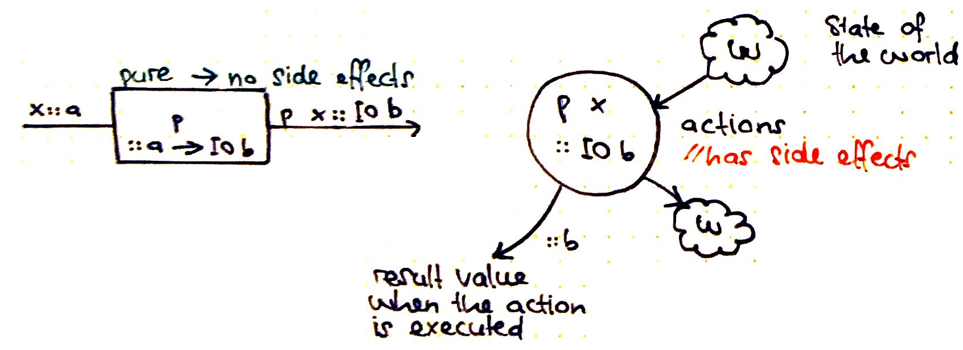 pure → no side effects
x::a
p
::a → IO b
p x::IO b
W
State of
the world
p x
:: IO b
actions
//has side effects
W
::b
result value
when the action
is executed